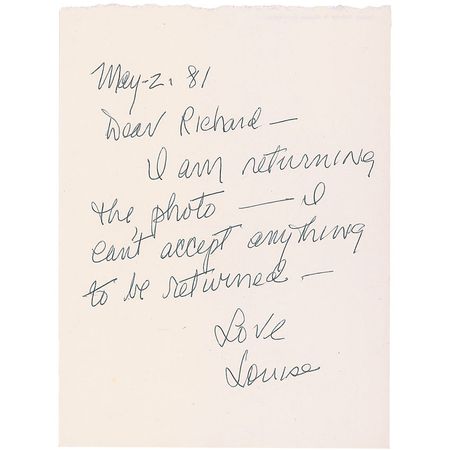 May-2. 81
Dear Richard —
I am returning
the photo — I
can't accept anything
to be returned —
Love
Louise